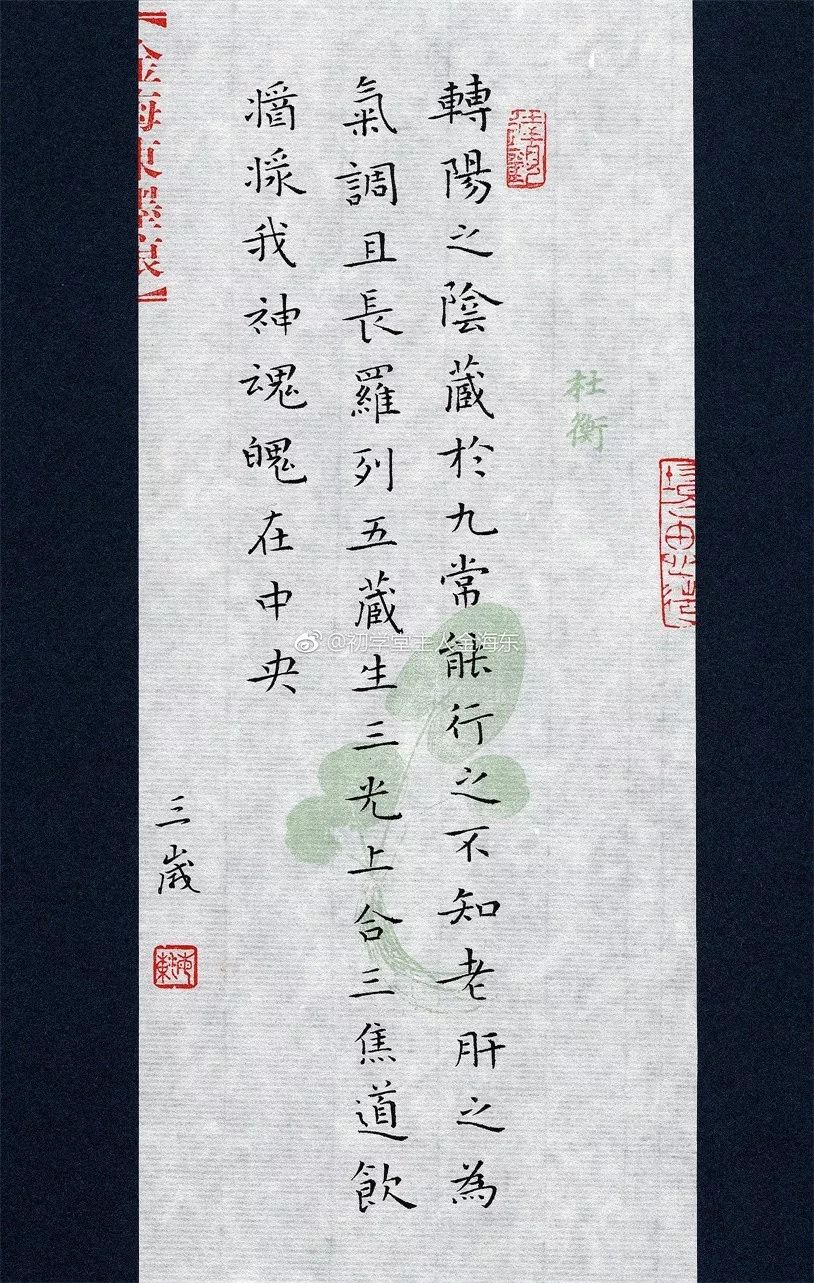 杜衡
轉陽之陰藏於九常能行之不知老肝之為
氣調且長羅列五藏生三光上合三焦道飲
醬漿我神魂魄在中央
三歲
海東
【金海東墨痕】
@初学堂主人金海东